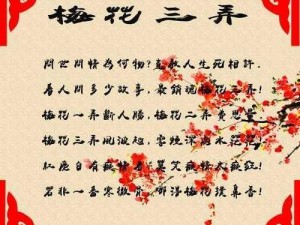 梅花三弄
問世間情為何物?直教人生死相許.
看人間多少故事,最銷魂梅花三弄!
梅花一弄斷人腸,梅花二弄費思量
梅花三弄風波起,雲煙深處水茫茫
紅塵自有癡情者,莫笑癡情太癡狂!
若非一番寒徹骨,哪得梅花撲鼻香!